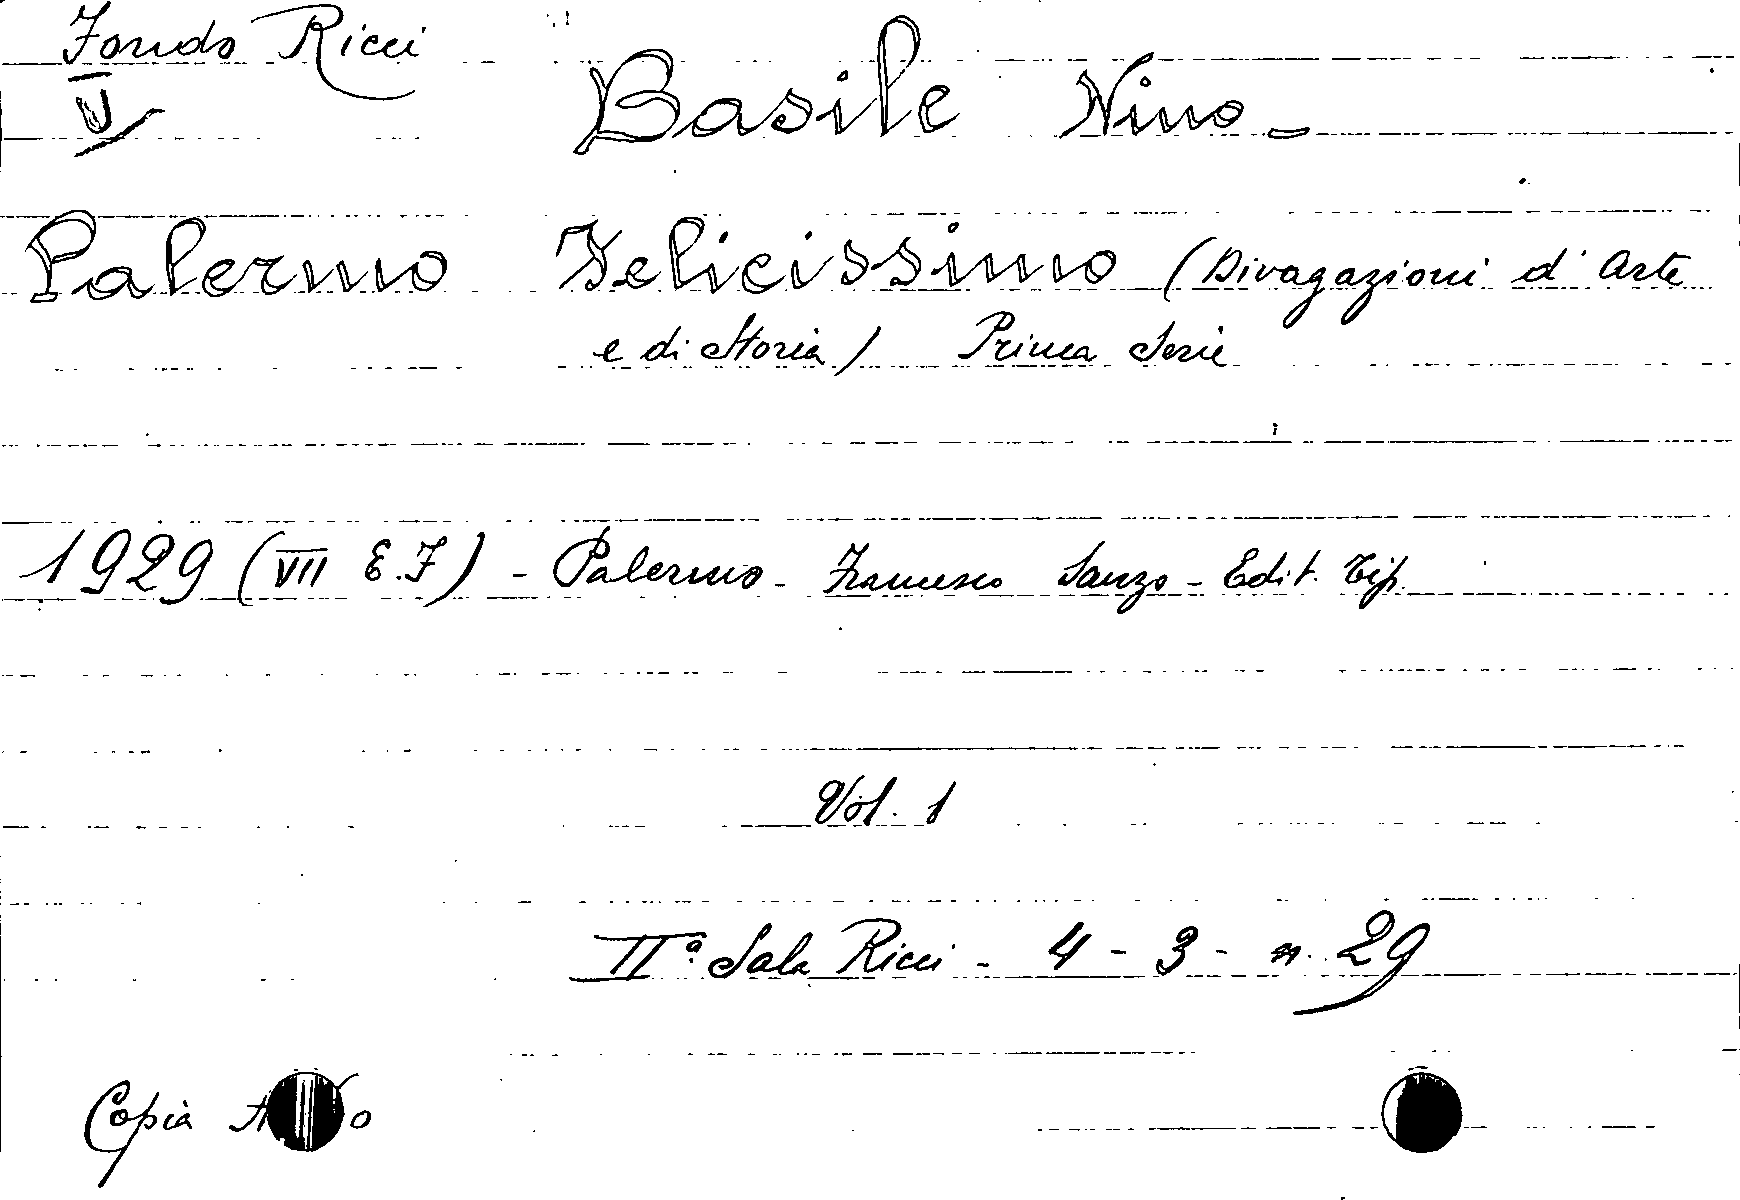 Fondo Ricci
V
Basile Nino -
Palermo Felicissimo (Divagazioni d'Arte
e di Storia) Prima Serie
1929 (VII E.F) - Palermo - Francesco Sanzo - Edit. Tip.
Vol. 1
IIª Sala Ricci - 4 - 3 - n. 29
Copia